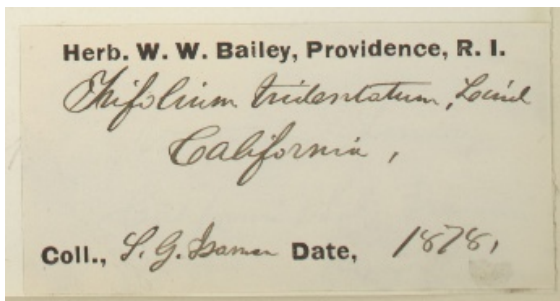 Herb. W. W. Bailey, Providence, R. I.
Trifolium tridentatum, Lind
California,
Coll., S. G. Isaman Date, 1878,